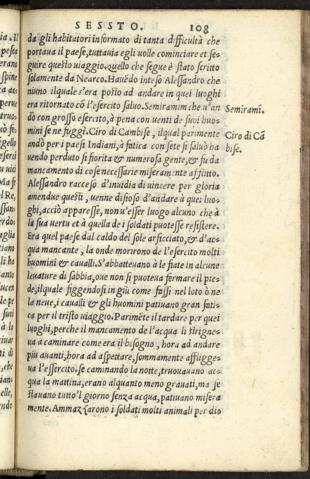 SESSTO. 108
da gli habitatori informato di tanta difficultà che
portaua il paese, tuttauia egli uolle cominciare et se-
guire questo uiaggio. quello che segue è stato scritto
solamente da Nearco. Hauẽdo inteso Alessandro che
niuno ilquale s'era posto ad andare in quei luoghi
era ritornato cõ l'esercito saluo. Semiramim che u'an
dò con grosso esercito, à pena con uenti de suoi huo-
mini se ne fuggì. Ciro di Cambise, ilqual parimente
andò per i paesi Indiani, à fatica con sete si saluò ha
uendo perduto sì fiorita & numerosa gente, & fu da
mancamento di cose necessarie miseramente afflitto.
Alessandro racceso d'inuidia di uincere per gloria
amendue questi, uenne disioso d'andare à quei luo-
ghi, acciò apparesse, non u'esser luogo alcuno che à
la sua uertu et à quella de i soldati potesse resistere.
Era quel paese dal caldo del sole arsicciato, & d'ac-
qua mancante, la onde morirono de l'esercito molti
huomini & caualli. S'abbatteuano à le fiate in alcune
leuature di sabbia, oue non si poteua fermare il pie-
de, ilquale figgendosi in giù come fassi nel loto ò ne
la neue, i caualli & gli huomini patiuano gran fati-
ca per il tristo uiaggio. Parimẽte il tardare per quei
luoghi, perche il mancamento de l'acqua li strigne-
ua à caminare come era il bisogno, hora ad andare
piu auanti, hora ad aspettare, sommamente affligge-
ua l'essercito. se caminando la notte, trouauano ac-
qua la mattina, erano alquanto meno grauati, ma se
stauano tutto'l giorno senza acqua, patiuano misera
mente. Ammazzarono i soldati molti animali per dis
Semirami.
Ciro di Cã
bise.